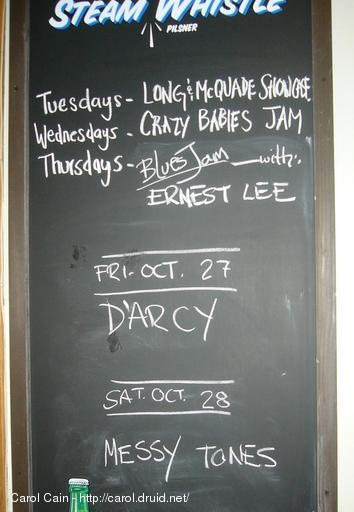 STEAM WHISTLE
PILSNER
Tuesdays - LONG & McQUADE SHOWCASE
Wednesdays - CRAZY BABIES JAM
Thursdays - Blues Jam with:
ERNEST LEE
FRI. OCT. 27
D'ARCY
SAT. OCT. 28
MESSY TONES
Carol Cain - http://carol.druid.net/